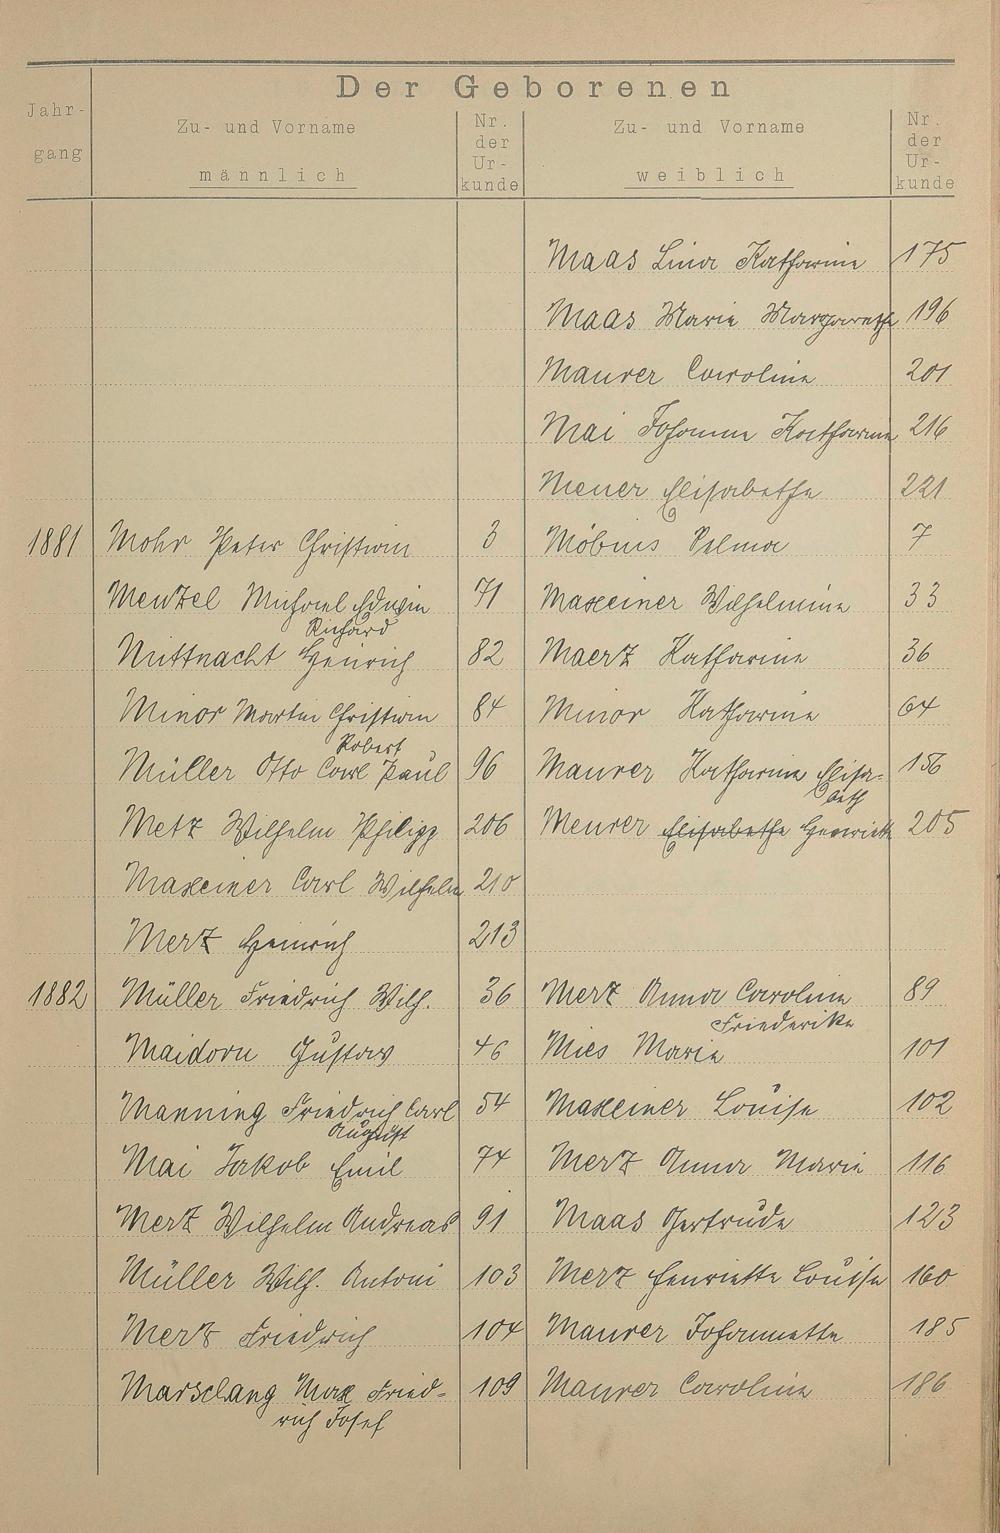 Der Geborenen
Jahr-
gang
Zu- und Vorname
männlich
Nr.
der
Ur-
kunde
Zu- und Vorname
weiblich
Nr.
der
Ur-
kunde
Maas Lina Katharine 175
Maas Marie Margarethe 196
Maurer Caroline 201
Mai Johanna Katharine 216
Meuer Elisabethe 221
1881 Mohr Peter Christian 3 Möbius Selma 7
Menzel Michael Edwin 71 Maxeiner Wilhelmine 33
Richard
Mittnacht Heinrich 82 Maerz Katharine 36
Minor Martin Christian 84 Minor Katharine 64
Robert
Müller Otto Carl Paul 96 Maurer Katharine Elisa- 156
beth
Metz Wilhelm Philipp 206 Meurer Elisabethe Henriette 205
Maxeiner Carl Wilhelm 210
Merz Heinrich 213
1882 Müller Friedrich Wilh. 36 Merz Anna Caroline 89
Friederike
Maidorn Gustav 46 Mies Marie 101
Manning Friedrich Carl 54 Maxeiner Louise 102
August
Mai Jakob Emil 74 Merz Anna Marie 116
Merz Wilhelm Andreas 91 Maas Gertrude 123
Müller Wilh. Antoni 103 Merz Henriette Louise 160
Merz Friedrich 104 Maurer Johannette 185
Marsclang Max Fried- 109 Maurer Caroline 186
rich Josef